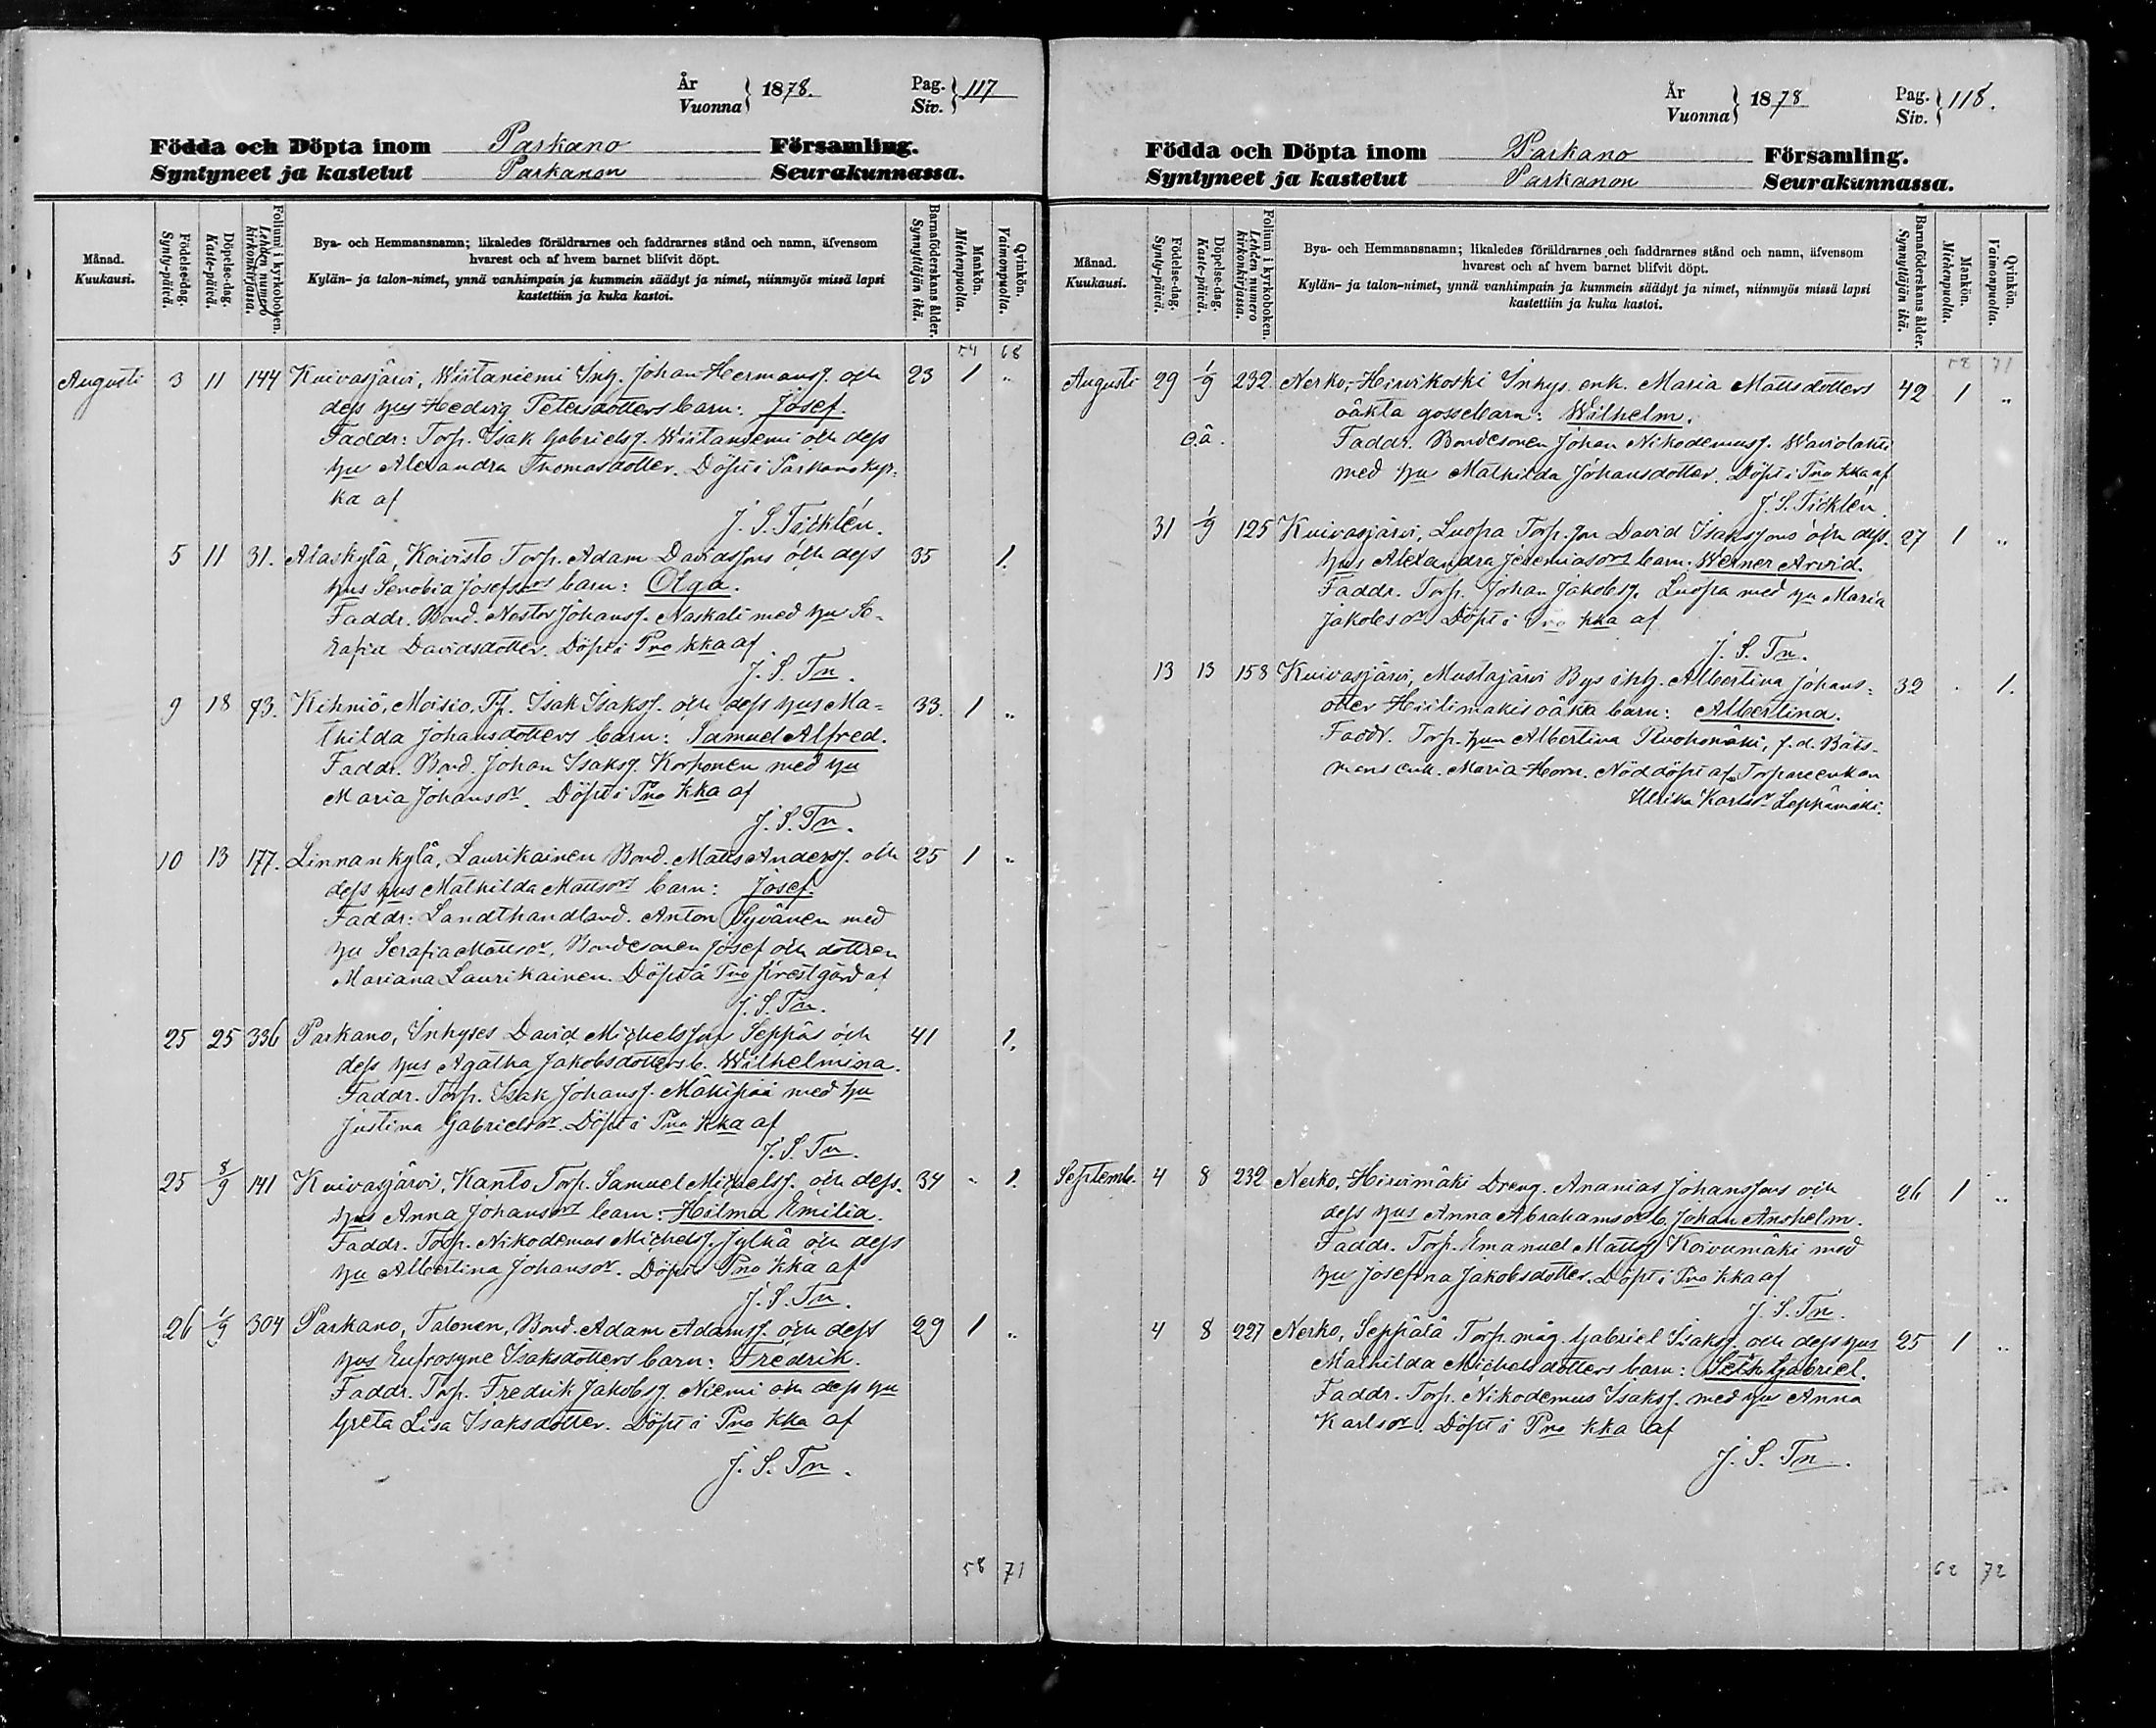 År
Vuonna } 1878.
Pag.
Siv. } 117
Födda och Döpta inom Parkano Församling.
Syntyneet ja kastetut Parkanon Seurakunnassa.
Månad.
Kuukausi.
Födelse-dag.
Synty-päivä.
Döpelse-dag.
Kaste-päivä.
Folium i kyrkoboken.
Lehden numero kirkonkirjassa.
Bya- och Hemmansnamn; likaledes föräldrarnes och faddrarnes stånd och namn, äfvensom
hvarest och af hvem barnet blifvit döpt.
Kylän- ja talon-nimet, ynnä vanhimpain ja kummein säädyt ja nimet, niinmyös missä lapsi
kastettiin ja kuka kastoi.
Barnaföderskans ålder.
Synnyttäjän ikä.
Mankön.
Miehenpuolia.
Qvinkön.
Vaimonpuolia.
54 68
Augusti 3 11 144 Kuivasjärvi, Wiitaniemi Inh. Johan Hermansf. och 23 1 "
dess hus Hedvig Petersdotters barn: Josef.
Faddr: Torp. Isak Gabrielsf. Wiitaniemi och dess
hu Alexandra Thomasdotter. Döpt i Parkano kyr-
ka af
J. S. Täcklén.
5 11 31. Alaskylä, Koivisto Torp. Adam Davidssons och dess 35 1.
hus Senobia Josefsdrs barn: Olga.
Faddr. Bond. Nestor Johansf. Naskali med hu Se-
rafia Davidsdotter. Döpt i Pno kka af
J. S. Tn.
9 18 73. Kihniö, Moisio, Tp. Isak Isaksf. och dess hus Ma- 33. 1 "
thilda Johansdotters barn: Samuel Alfred.
Faddr. Bond. Johan Isaksf. Korhonen med hu
Maria Johansdr. Döpt i Pno kka af
J. S. Tn.
10 13 177. Linnankylä, Laurikainen Bond. Matts Andersf. och 25 1 "
dess hus Mathilda Mattsdrs barn: Josef.
Faddr: Landthandland. Anton Syvänen med
hu Serafia Mattsdr, Bondesonen Josef och dottren
Mariana Laurikainen. Döpt å Pno prestgård af
J. S. Tn.
25 25 336 Parkano, Inhyses David Michelssons Seppäs och 41 1.
dess hus Agatha Jakobsdotters b. Wilhelmina.
Faddr. Torp. Isak Johansf. Mäkipää med hu
Justina Gabrielsdr. Döpt i Pno kka af
J. S. Tn.
25 8/9 141 Kuivasjärvi, Kanto Torp. Samuel Michelsf. och dess 34 " 1.
hus Anna Johansdrs barn: Hilma Emilia.
Faddr. Torp. Nikodemus Michelsf. Jylhä och dess
hu Albertina Johansdr. Döpt i Pno kka af
J. S. Tn.
26 1/9 304 Parkano, Talonen, Bond. Adam Adamsf. och dess 29 1 "
hus Eufrosyne Isaksdotters barn: Fredrik.
Faddr. Torp. Fredrik Jakobsf. Niemi och dess hu
Greta Lisa Isaksdotter. Döpt i Pno kka af
J. S. Tn.
58 71
År
Vuonna } 1878
Pag.
Siv. } 118.
Födda och Döpta inom Parkano Församling.
Syntyneet ja kastetut Parkanon Seurakunnassa.
Månad.
Kuukausi.
Födelse-dag.
Synty-päivä.
Döpelse-dag.
Kaste-päivä.
Folium i kyrkoboken.
Lehden numero kirkonkirjassa.
Bya- och Hemmansnamn; likaledes föräldrarnes och faddrarnes stånd och namn, äfvensom
hvarest och af hvem barnet blifvit döpt.
Kylän- ja talon-nimet, ynnä vanhimpain ja kummein säädyt ja nimet, niinmyös missä lapsi
kastettiin ja kuka kastoi.
Barnaföderskans ålder.
Synnyttäjän ikä.
Mankön.
Miehenpuolia.
Qvinkön.
Vaimonpuolia.
58 71
Augusti 29 1/9 232 Nerko, Hirvikoski Inhys. enk. Maria Mattsdotters 42 1 "
oäkta gossebarn: Wilhelm.
oä. Faddr. Bondesonen Johan Nikodemusf.
med hu Mathilda Johansdotter. Döpt i Pno kka af
J. S. Täcklén.
31 1/9 125 Kuivasjärvi, Luopa Torp. son David Isakssons och dess 27 1 "
hus Alexandra Jeremiasdrs barn: Werner Arvid.
Faddr. Torp. Johan Jakobsf. Luopa med hu Maria
Jakobsdr Döpt i Pno kka af
J. S. Tn.
13 13 158 Kuivasjärvi, Mustajärvi Bys inh. Albertina Johans- 32 . 1.
otter Hiilimäkis oäkta barn: Albertina.
Faddr. Torp. hun Albertina Ruohomäki, f.d. Båts-
mans enk. Maria Horn. Nöddöpt af Torpareenkan
Ulrika Karlsdr Leppämäki.
Septemb. 4 8 232 Nerko, Hirvimäki Dreng. Ananias Johanssons och 26 1 "
dess hus Anna Abrahamsdrs b. Johan Anshelm.
Faddr. Torp. Emanuel Mattsf. Koivumäki med
hu Josefina Jakobsdotter. Döpt i Pno kka af
J. S. Tn.
4 8 227 Nerko, Seppälä Torp. måg. Gabriel Isaksf. och dess hus 25 1 "
Mathilda Michelsdotters barn: Seth Gabriel.
Faddr. Torp. Nikodemus Isaksf. med hu Anna
Karlsdr. Döpt i Pno kka af
J. S. Tn.
62 72